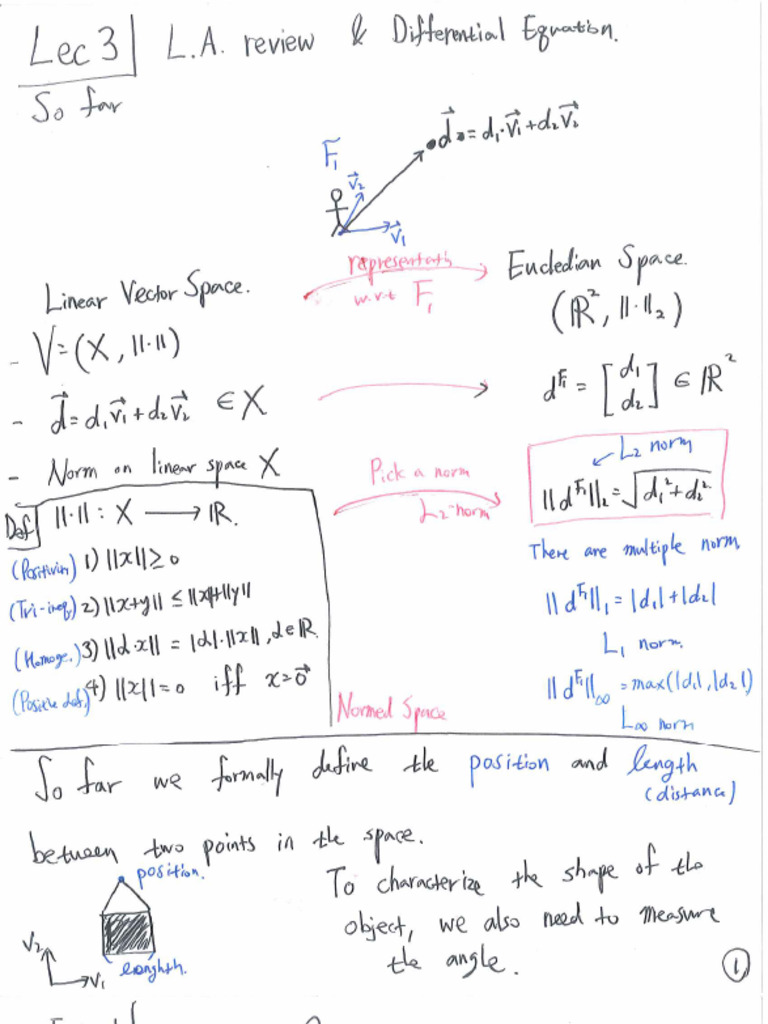 Lec 3 L.A. review & Differential Equation.
So far
F₁
d⃗ = d₁·v⃗₁ + d₂v⃗₂
v⃗₂
v⃗₁
Linear Vector Space.
w.r.t F₁
Eucledian Space.
(ℝ², ||·||₂)
- V = (X, ||·||)
- d⃗ = d₁v⃗₁ + d₂v⃗₂ ∈ X
d^F₁ = [d₁ d₂] ∈ ℝ²
- Norm on linear space X
Pick a norm
L₂-norm
L₂ norm
||d^F₁||₂ = √(d₁² + d₂²)
Def ||·|| : X → ℝ.
1) ||x|| ≥ 0
(Tri-ineq) 2) ||x+y|| ≤ ||x||+||y||
(Homoge.) 3) ||α·x|| = |α|·||x||, α∈ℝ.
(Positive def.) 4) ||x|| = 0 iff x = 0⃗
Normed Space
There are multiple norm.
||d^F₁||₁ = |d₁| + |d₂|
L₁ norm.
||d^F₁||∞ = max(|d₁|, |d₂|)
L∞ norm
So far we formally define the position and length
(distance)
between two points in the space.
position.
V₂
V₁
To characterize the shape of the
object, we also need to measure
the angle.
1